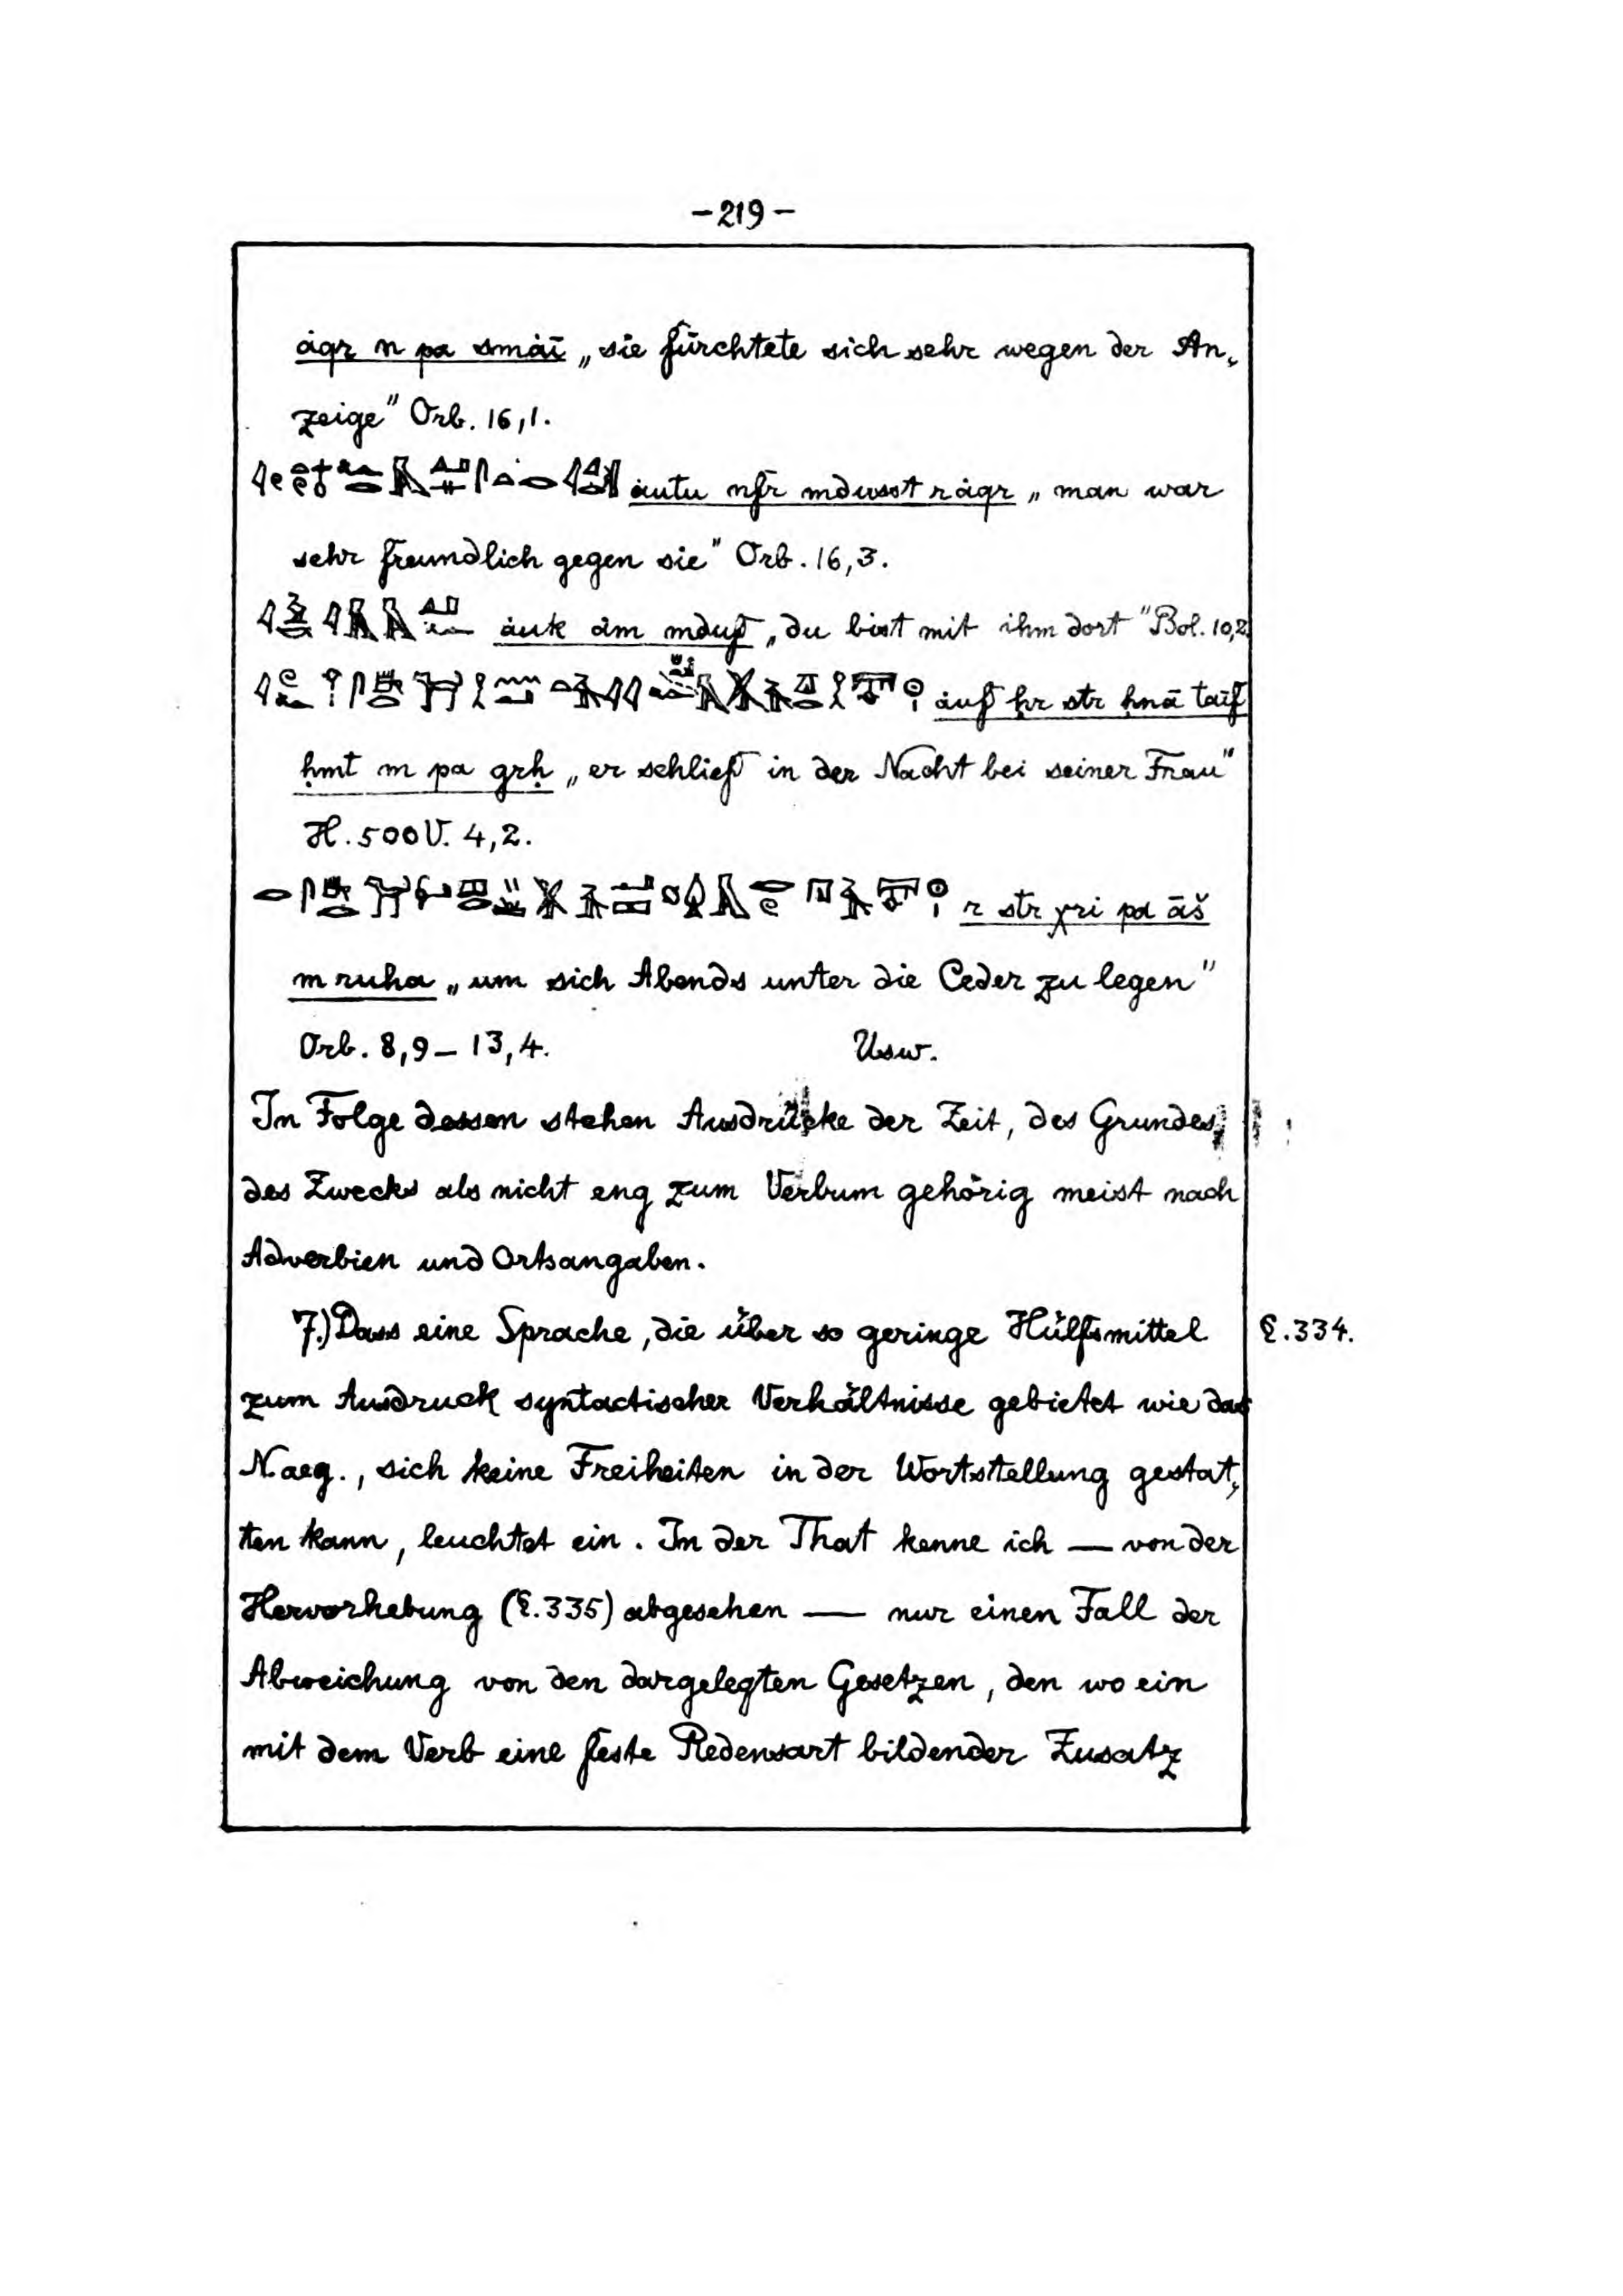 -219-
ȧqr n pa smȧī „sie fürchtete sich sehr wegen der An-
zeige" Orb. 16,1.
ȧutu nfr mdusst r ȧqr „man war
sehr freundlich gegen sie" Orb. 16,3.
ȧuk ȧm mduf „du bist mit ihm dort" Bol. 10,2
ȧuf ḥr str ḥnā taīf
ḥmt m pa grḥ „er schlief in der Nacht bei seiner Frau"
H. 500 V. 4,2.
r str χri pa āš
m ruha „um sich Abends unter die Ceder zu legen"
Orb. 8,9 – 13,4. Usw.
In Folge dessen stehen Ausdrücke der Zeit, des Grundes,
des Zwecks als nicht eng zum Verbum gehörig meist nach
Adverbien und Ortsangaben.
7.) Dass eine Sprache, die über so geringe Hülfsmittel §. 334.
zum Ausdruck syntactischer Verhältnisse gebietet wie das
N.aeg., sich keine Freiheiten in der Wortstellung gestat-
ten kann, leuchtet ein. In der That kenne ich — von der
Hervorhebung (§. 335) abgesehen — nur einen Fall der
Abweichung von den dargelegten Gesetzen, den wo ein
mit dem Verb eine feste Redensart bildender Zusatz